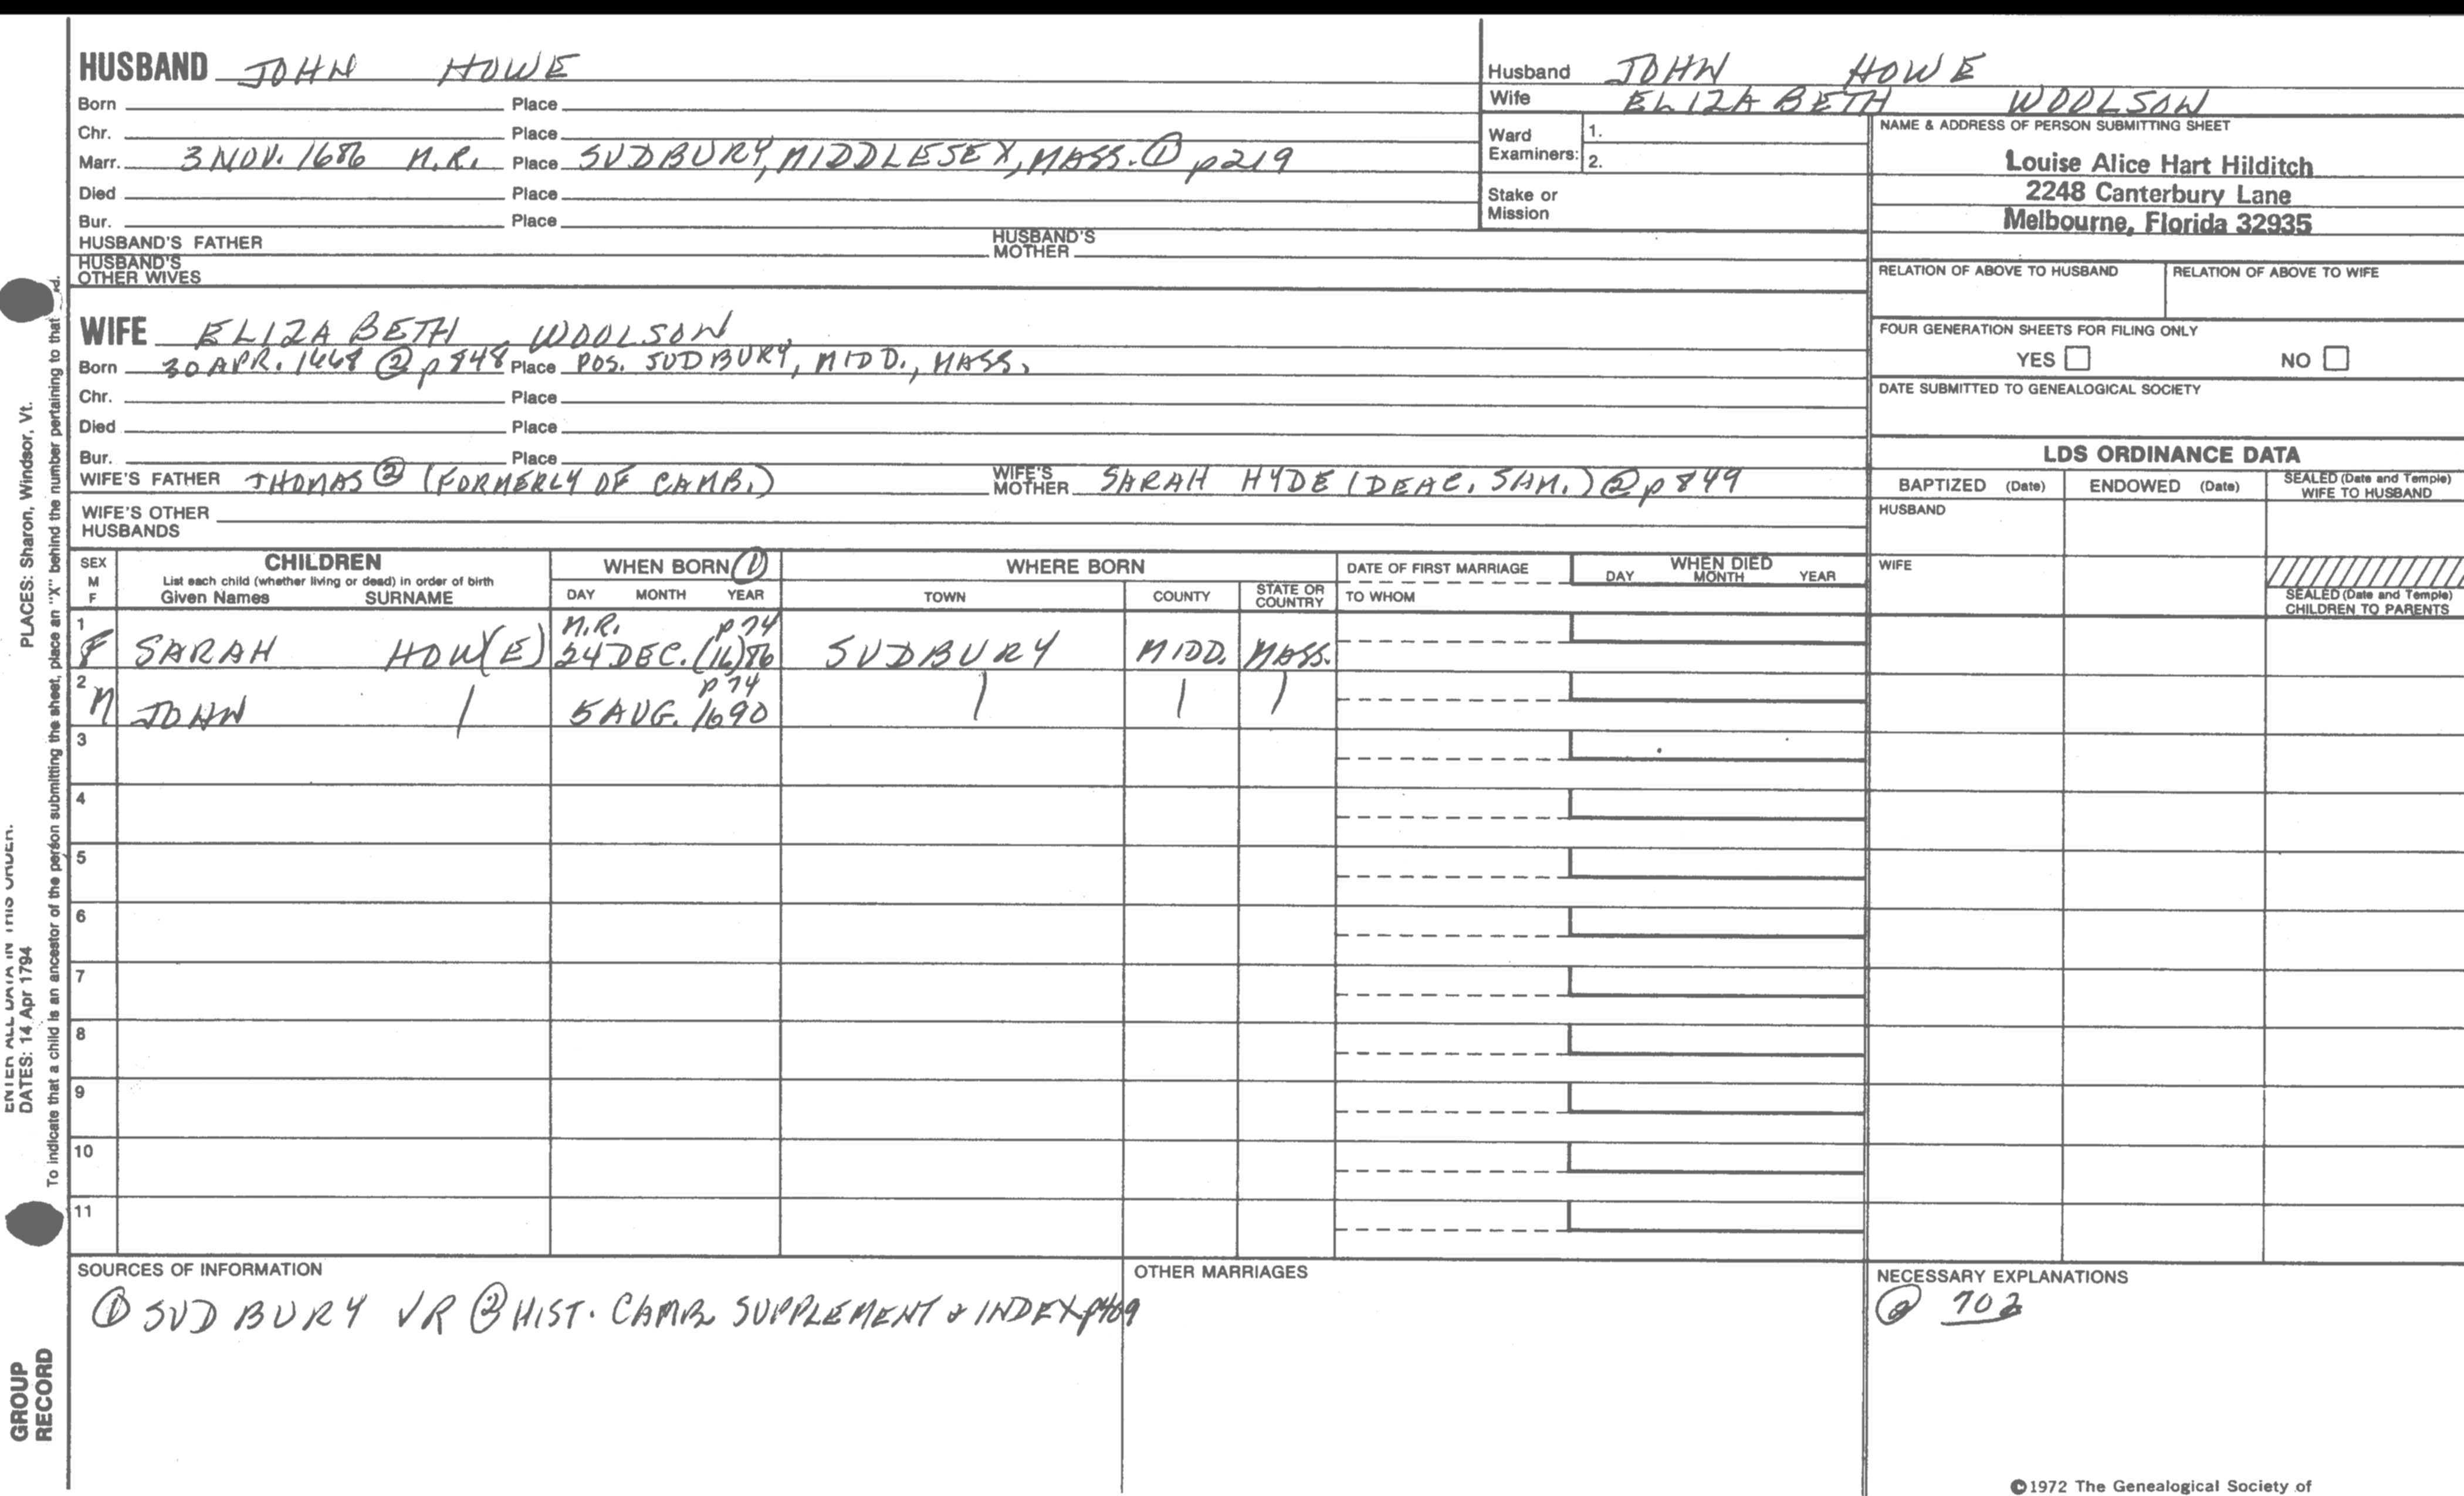 HUSBAND JOHN HOWE
Born Place
Chr. Place
Marr. 3 NOV. 1686 M.R. Place SUDBURY, MIDDLESEX, MASS. ① p219
Died Place
Bur. Place
HUSBAND'S FATHER HUSBAND'S MOTHER
HUSBAND'S OTHER WIVES
WIFE ELIZABETH WOOLSON
Born 30 APR. 1668 ② p 848 Place POS. SUDBURY, MIDD., MASS.
Chr. Place
Died Place
Bur. Place
WIFE'S FATHER THOMAS ② (FORMERLY OF CAMB.) WIFE'S MOTHER SARAH HYDE (DEAC. SAM.) ② p 849
WIFE'S OTHER HUSBANDS
Husband JOHN HOWE
Wife ELIZABETH WOOLSON
Ward Examiners: 1.
2.
Stake or Mission
NAME & ADDRESS OF PERSON SUBMITTING SHEET
Louise Alice Hart Hilditch
2248 Canterbury Lane
Melbourne, Florida 32935
RELATION OF ABOVE TO HUSBAND RELATION OF ABOVE TO WIFE
FOUR GENERATION SHEETS FOR FILING ONLY
YES NO
DATE SUBMITTED TO GENEALOGICAL SOCIETY
LDS ORDINANCE DATA
BAPTIZED (Date) ENDOWED (Date) SEALED (Date and Temple) WIFE TO HUSBAND
HUSBAND
WIFE
SEALED (Date and Temple) CHILDREN TO PARENTS
SEX M F
CHILDREN
List each child (whether living or dead) in order of birth
Given Names SURNAME
WHEN BORN ①
DAY MONTH YEAR
WHERE BORN
TOWN COUNTY STATE OR COUNTRY
DATE OF FIRST MARRIAGE
TO WHOM
WHEN DIED
DAY MONTH YEAR
1 M.R. p74
F SARAH HOW(E) 24 DEC. (16)86 SUDBURY MIDD. MASS.
2 p74
M JOHN | 5 AUG. 1690 | | |
3
4
5
6
7
8
9
10
11
SOURCES OF INFORMATION
① SUDBURY VR ② HIST. CAMB. SUPPLEMENT & INDEX
OTHER MARRIAGES
NECESSARY EXPLANATIONS
702
©1972 The Genealogical Society of
PLACES: Sharon, Windsor, Vt.
ENTER ALL DATA IN THIS ORDER.
DATES: 14 Apr 1794
To indicate that a child is an ancestor of the person submitting the sheet, place an "X" behind the number pertaining to that
GROUP RECORD